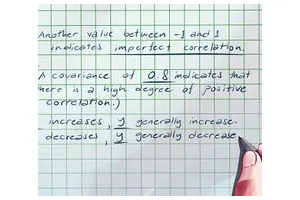 Another value between -1 and 1
indicates imperfect correlation.
A covariance of 0.8 indicates that
here is a high degree of positive
correlation.)
increases, y generally increase.
decreases, y generally decrease